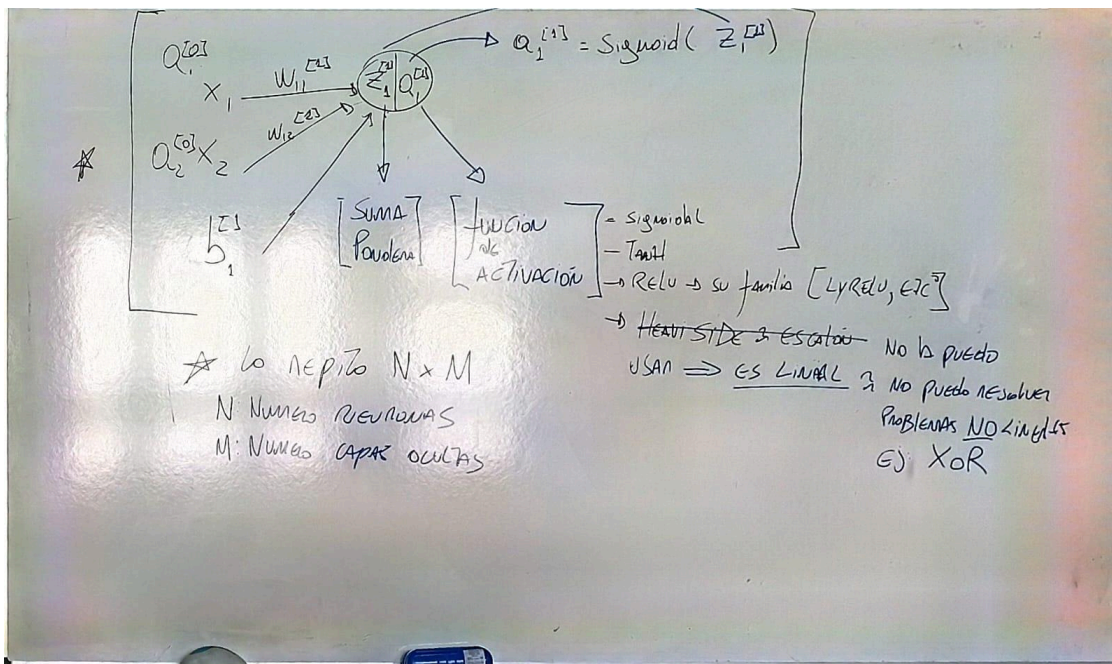 a₁^[0]
x₁
W₁₁^[1]
a₂^[0] x₂
W₁₂^[1]
b₁^[1]
Z₁^[1] | a₁^[1]
a₁^[1] = Sigmoid( Z₁^[1] )
[SUMA PONDERA]
[FUNCIÓN de ACTIVACIÓN]
- Sigmoidal
- TanH
→ RELU → su familia [LyRELU, ETC]
→ HEAVISIDE o ESCALÓN No la puedo
USAR ⇒ ES LINEAL → No puedo resolver
PROBLEMAS NO LINEALES
EJ XOR
★ Lo repito N x M
N: Numero NEURONAS
M: Numero CAPAS OCULTAS